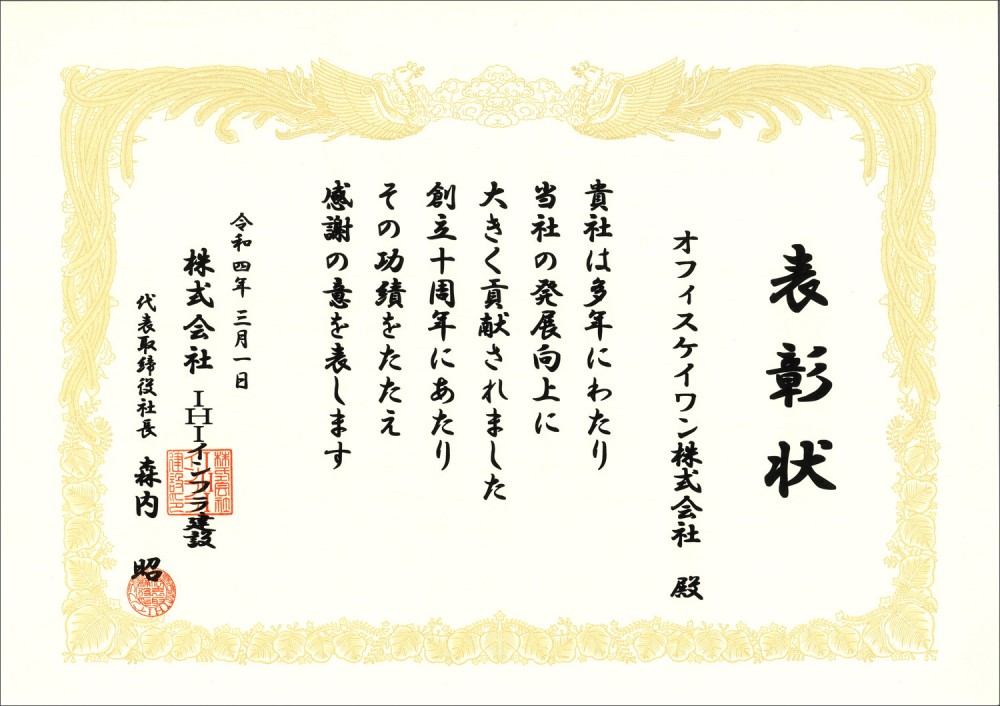 表彰状
オフィスケイワン株式会社 殿
貴社は多年にわたり
当社の発展向上に
大きく貢献されました
創立十周年にあたり
その功績をたたえ
感謝の意を表します
令和四年 三月一日
株式会社 IHIインフラ建設
代表取締役社長 森内 昭